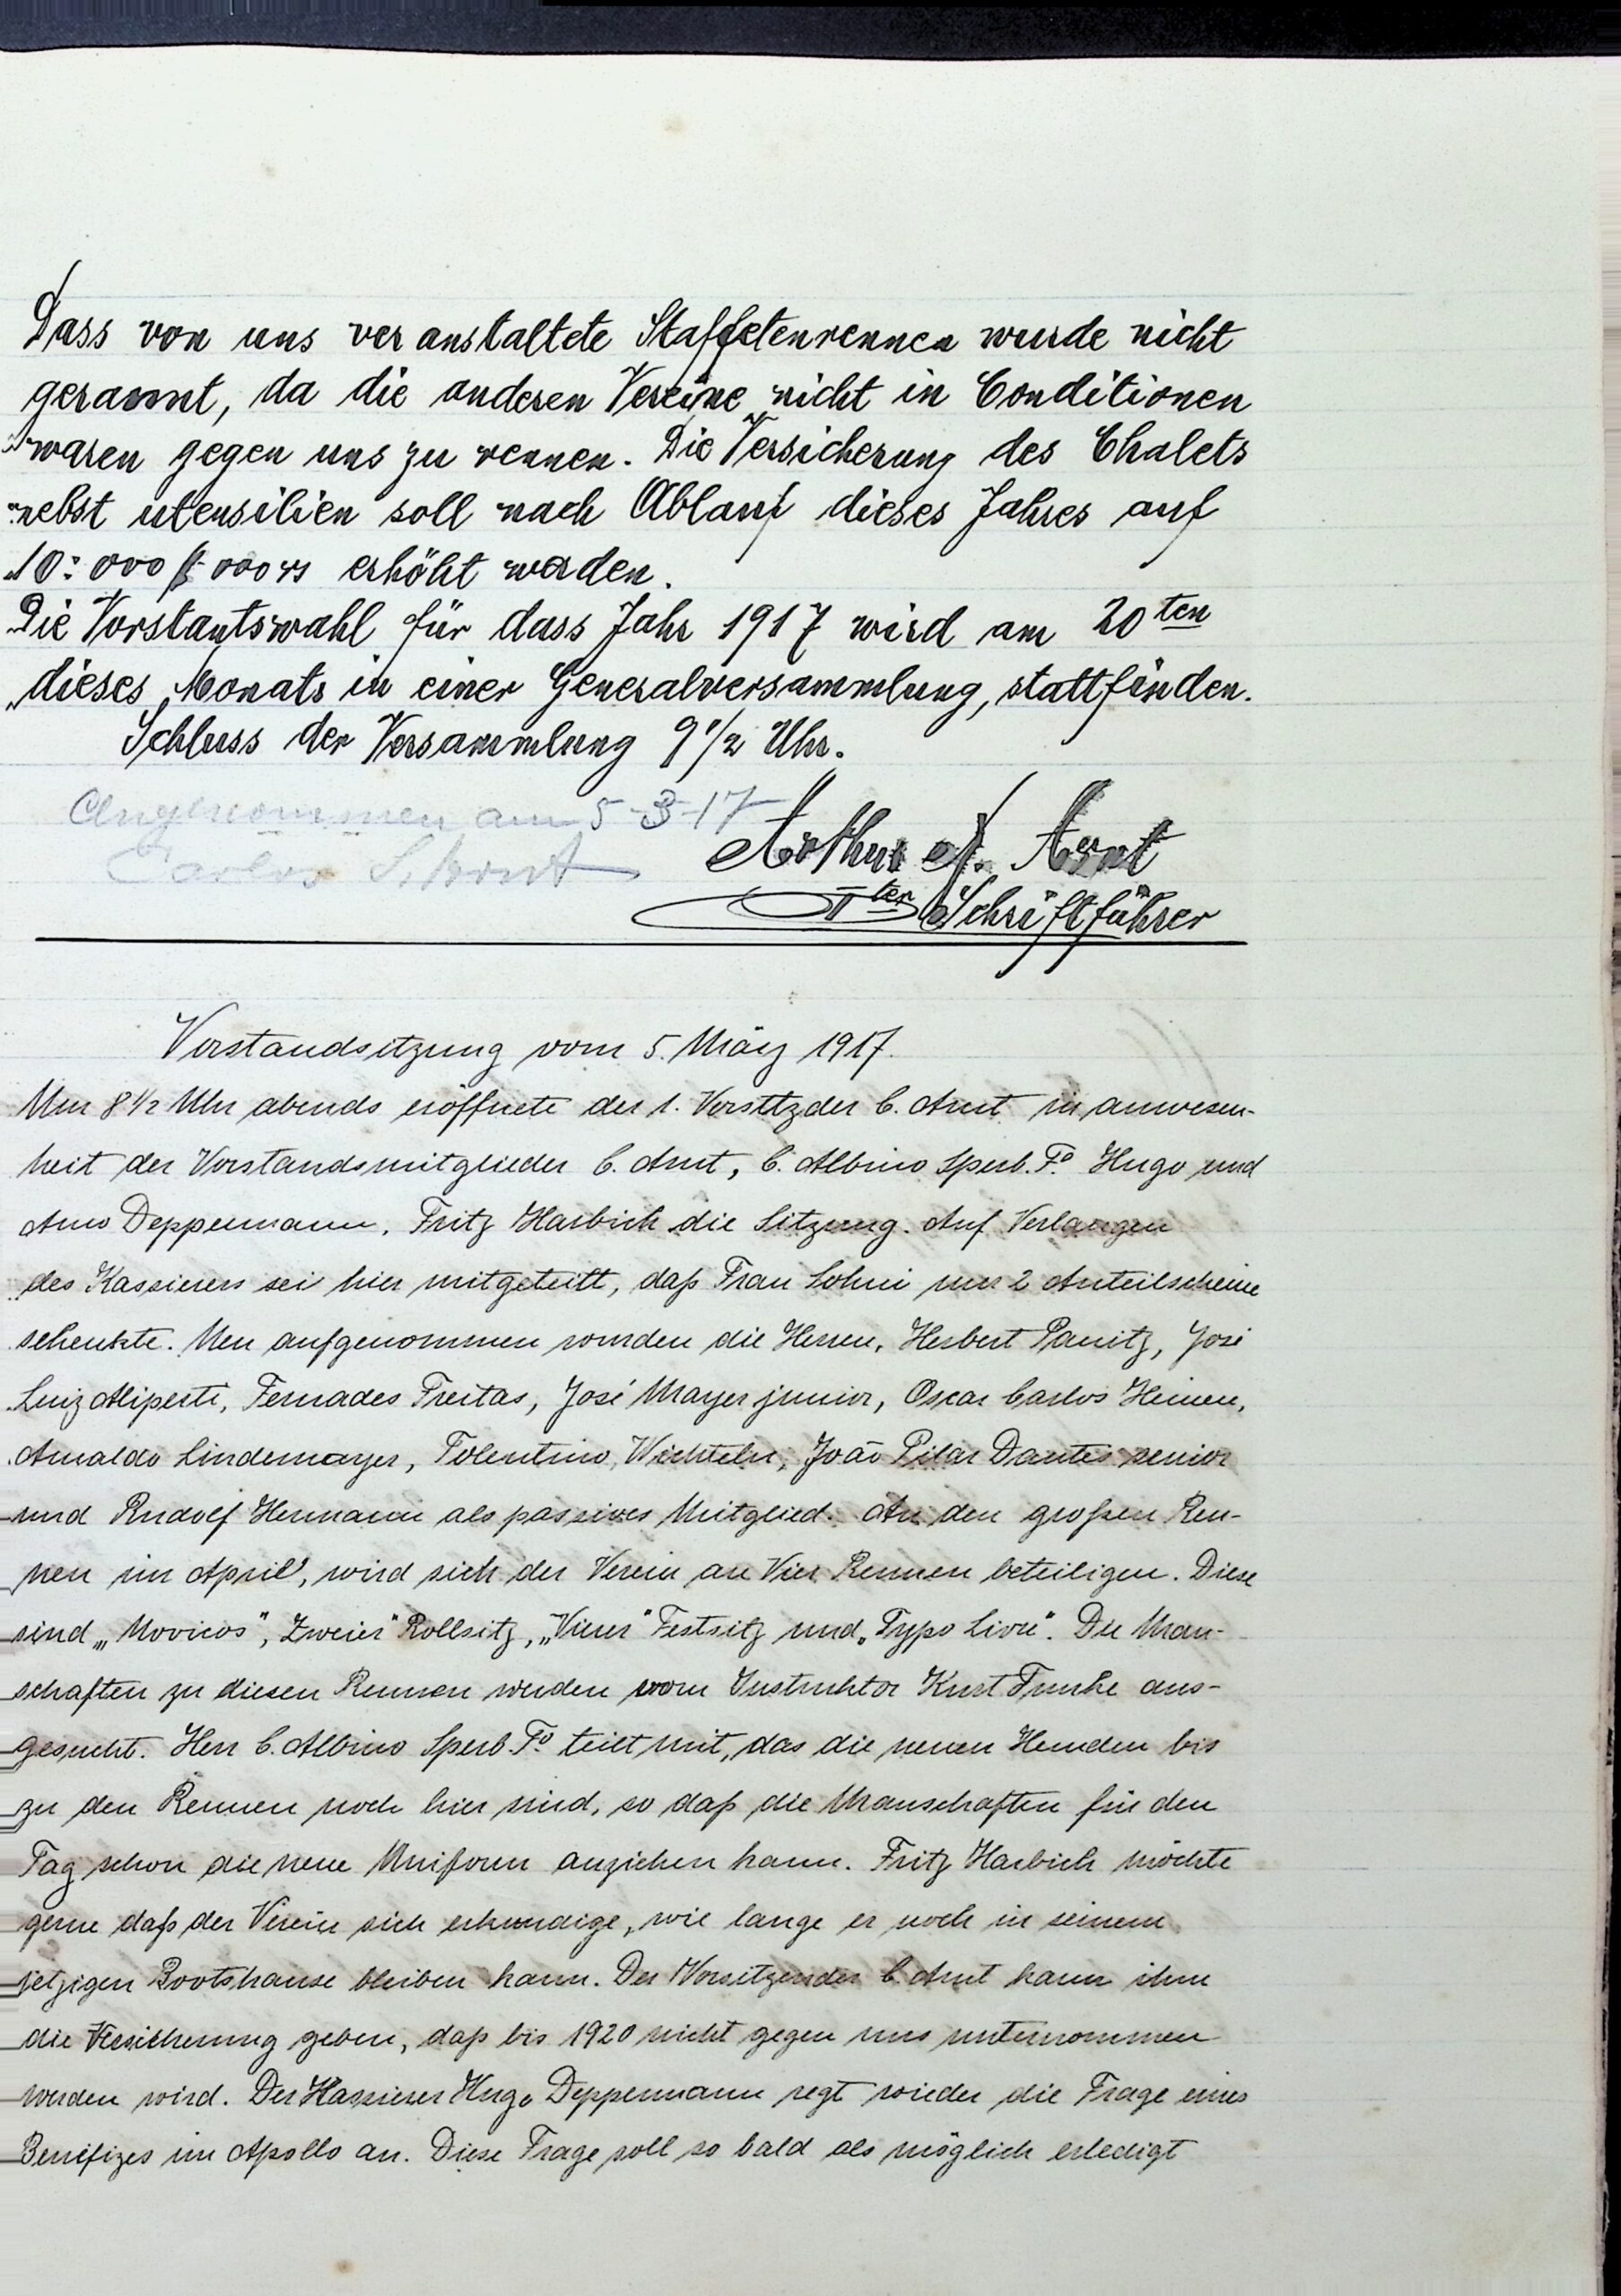 Dass von uns veranstaltete Staffetenrennen wurde nicht
gerannt, da die anderen Vereine nicht in Conditionen
waren gegen uns zu rennen. Die Versicherung des Chalets
nebst utensilien soll nach Ablauf dieses Jahres auf
10:000$000rs erhöht werden.
Die Vorstantswahl für dass Jahr 1917 wird am 20ten
dieses Monats in einer Generalversammlung, stattfinden.
Schluss der Versammlung 9 1/2 Uhr.
Angenommen am 5-3-17
Carlos Arnt
Arthur A. Arnt
Iter Schriftführer
Vorstandsitzung vom 5. März 1917.
Um 8 1/2 Uhr abends eröffnete der 1. Vorsitzder C. Arnt in anwesen-
heit der Vorstandsmitglieder C. Arnt, C. Albino Sperb. Fo. Hugo und
Arno Deppermann, Fritz Harbich die Sitzung. Auf Verlangen
des Kassierers sei hier mitgeteilt, daß Frau Sohni nur 2 Anteilscheine
schenkte. Neu aufgenommen wurden die Herren, Herbert Panitz, José
Luiz Aliperti, Fernades Freitas, José Mayer junior, Oscar Carlos Heinen,
Arnaldo Lindemayer, Tolentino, João Pilar Dantes senior
und Rudolf Hermann als passives Mitglied. An den großen Ren-
nen im April, wird sich der Verein an Vier Rennen beteiligen. Diese
sind „Novicos", Zweier" Rollsitz, „Vierer" Festsitz und „Typo Livre". Die Man-
schaften zu diesen Rennen werden vom Instruktor Kurt Funke aus-
gesucht. Herr C. Albino Sperb. Fo. teilt mit, das die neuen Hemden bis
zu den Rennen noch hier sind, so daß die Manschaften für den
Tag schon die neue Uniform anziehen kann. Fritz Harbich möchte
gerne daß der Verein sich erkundige, wie lange er noch in seinem
jetzigen Bootshause bleiben kann. Der Vorsitzender C. Arnt kann ihm
die Versicherung geben, daß bis 1920 nicht gegen uns unternommen
werden wird. Der Kassierer Hugo Deppermann regt wieder die Frage eines
Benifizes im Apollo an. Diese Frage soll so bald als möglich erledigt